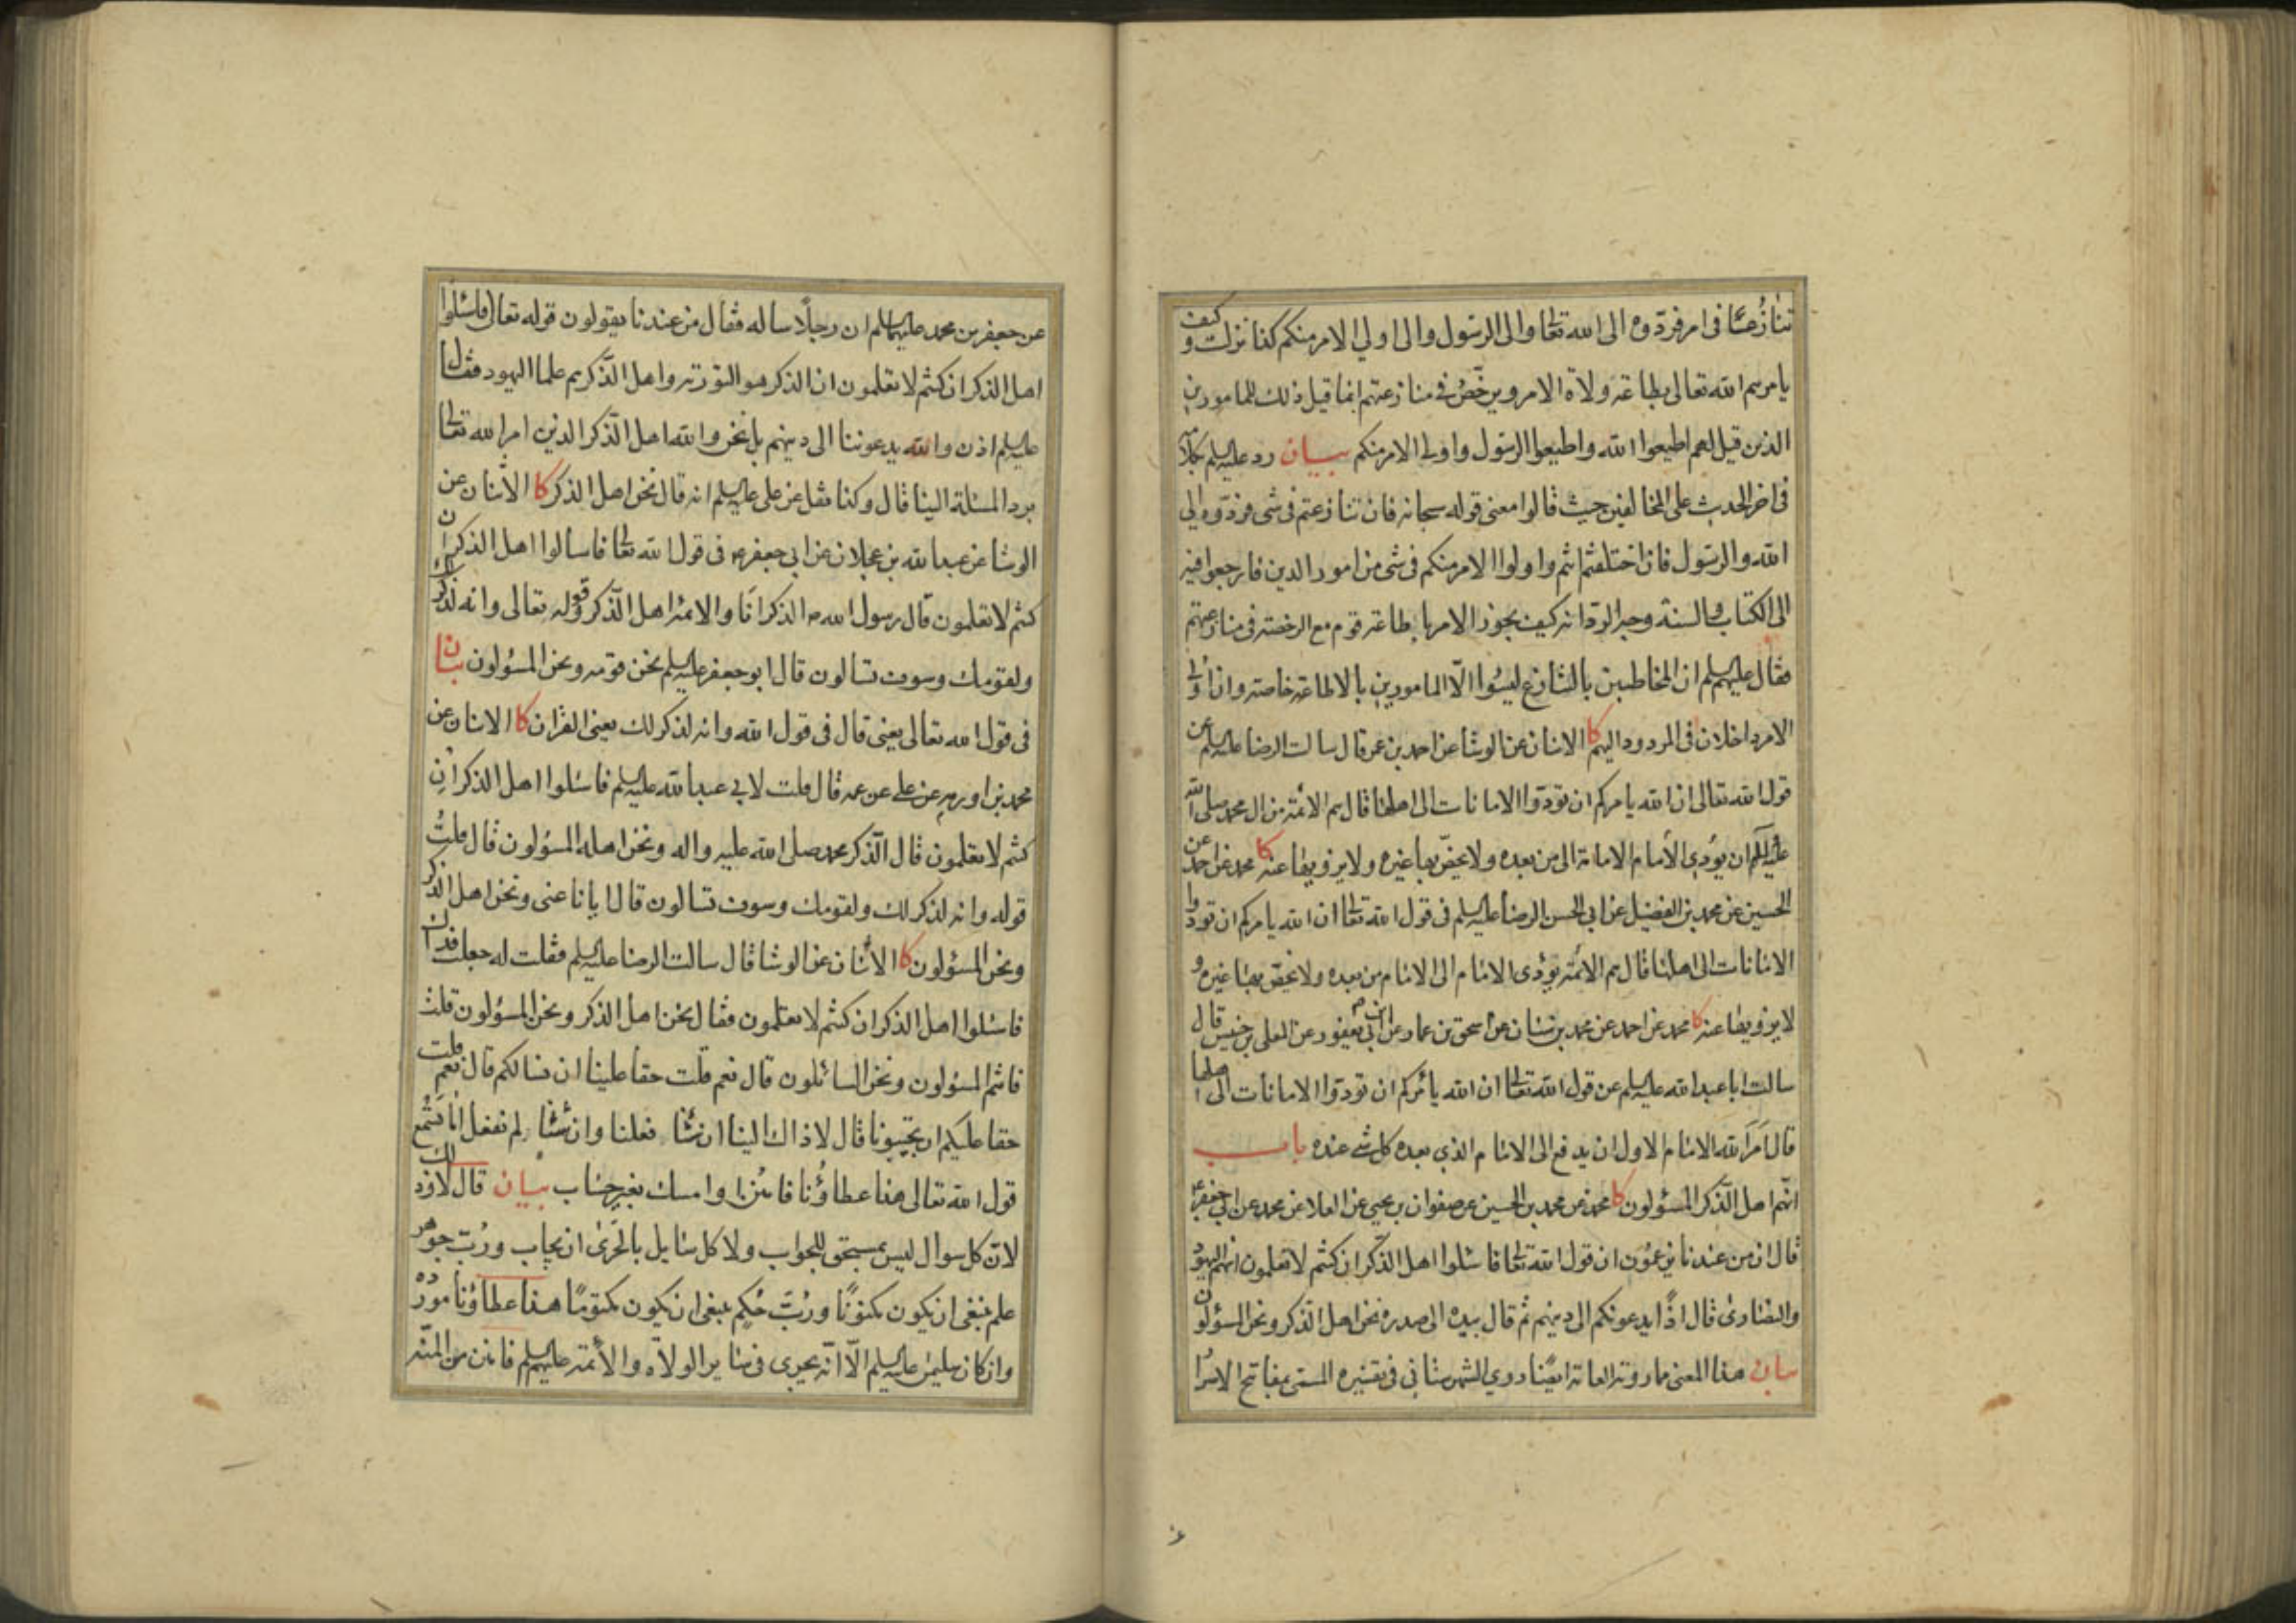 تنازعًا فى امر فردّوه الى الله تعالى والى الرسول والى اولي الامر منكم كذا نزلت وكيف
يامرهم الله تعالى بطاعة ولاة الامر ويرخّص فى منازعتهم انما قيل ذلك للمامورين
الذين قيل لهم اطيعوا الله واطيعوا الرسول واولى الامر منكم بيان رد عليه السلم بكلامه
فى اخر الحديث على المخالفين حيث قالوا معنى قوله سبحانه فان تنازعتم فى شى فردّوه الى
الله والرسول فان اختلفتم انتم واولوا الامر منكم فى شى من امور الدين فارجعوا فيه
الى الكتاب والسنة وجه الردّ انه كيف يجوز الامر باطاعة قوم مع الرخصة فى منازعتهم
فقال عليهم السلم ان المخاطبين بالتنازع ليسوا الّا المامورين بالاطاعة خاصة وان اولى
الامر داخلان فى المردود اليهم كا الاثنان عن الوشا عن احمد بن عمر قال سالت الرضا عليه السلم عن
قول الله تعالى ان الله يامركم ان تودّوا الامانات الى اهلها قال هم الائمة من ال محمد صلى الله
عليه وآله ان يؤدى الأمام الامانة الى من بعده ولا يخصّ بها غيره ولا يزويها عنه كا محمد عن احمد عن
الحسين عن محمد بن الفضيل عن ابي الحسن الرضا عليه السلم فى قول الله تعالى ان الله يامركم ان تودوا
الامانات الى اهلها قال هم الائمة يؤدى الامام الى الامام من بعده ولا يخصّ بها غيره و
لا يزويها عنه كا محمد عن احمد عن محمد بن سنان عن اسحق بن عمار عن ابن ابي يعفور عن المعلى بن خنيس قال
سالت ابا عبد الله عليه السلم عن قول الله تعالى ان الله يامركم ان تودوا الامانات الى اهلها
قال امر الله الامام الاول ان يدفع الى الامام الذي بعده كل شي عنده باب
انّهم اهل الذّكر المسؤلون كا محمد عن محمد بن الحسين عن صفوان بن يحيى عن العلا عن محمد عن ابي جعفر ع
قال ان من عندنا يزعمون ان قول الله تعالى فاسئلوا اهل الذّكر ان كنتم لا تعلمون انهم اليهود
والنصارى قال اذًا يدعونكم الى دينهم ثم قال بيده الى صدره نحن اهل الذّكر ونحن المسؤلون
بيان هذا المعنى مما روته العامة ايضًا روي الشهرستانى فى تفسيره المسمّى بمفاتيح الاسرار
عن جعفر بن محمد عليهما السلم ان رجلًا ساله فقال من عندنا يقولون قوله تعالى فاسئلوا
اهل الذكر ان كنتم لا تعلمون ان الذكر هو التورية واهل الذّكر هم علما اليهود فقال
عليه السلم اذن والله يدعوننا الى دينهم بل نحن والله اهل الذّكر الذين امر الله تعالى
برد المسئلة الينا قال وكذا نقل عن على عليه السلم انه قال نحن اهل الذكر كا الاثنان عن
الوشا عن عبد الله بن عجلان عن ابي جعفر ع فى قول الله تعالى فاسالوا اهل الذكر ان
كنتم لا تعلمون قال رسول الله ص الذكر انا والائمة اهل الذّكر وقوله تعالى وانه لذكر لك
ولقومك وسوف تسالون قال ابو جعفر عليه السلم نحن قومه ونحن المسؤلون بيان
فى قول الله تعالى يعنى قال فى قول الله وانه لذكر لك يعنى القران كا الاثنان عن
محمد بن اورمه عن على عن عمه قال قلت لابي عبد الله عليه السلم فاسئلوا اهل الذكر ان
كنتم لا تعلمون قال الذّكر محمد صلى الله عليه واله ونحن اهله المسؤلون قال قلتُ
قوله وانه لذكر لك ولقومك وسوف تسالون قال ايانا عنى ونحن اهل الذكر
ونحن المسؤلون كا الاثنان عن الوشا قال سالت الرضا عليه السلم فقلت له جعلت فداك
فاسئلوا اهل الذكر ان كنتم لا تعلمون فقال نحن اهل الذكر ونحن المسؤلون قلت
فانتم المسؤلون ونحن السائلون قال نعم قلت حقا علينا ان نسالكم قال نعم قلت
حقا عليكم ان تجيبونا قال لا ذاك الينا ان شئنا فعلنا وان شئنا لم نفعل اما تسمع
قول الله تعالى هذا عطاؤنا فامنن او امسك بغير حساب بيان قال لا ذلك
لانّ كل سوال ليس بمستحق للجواب ولا كل سايل بالحَرى ان يجاب وربّ جوهر
علم ينبغى ان يكون مكنونًا وربّ حُكم ينبغى ان يكون مكتومًا هذا عطاؤنا مورده
وان كان سليمن عليه السلم الّا انّه يجرى فى ساير الولاة والأئمة عليهم السلم فامنن من المنّه